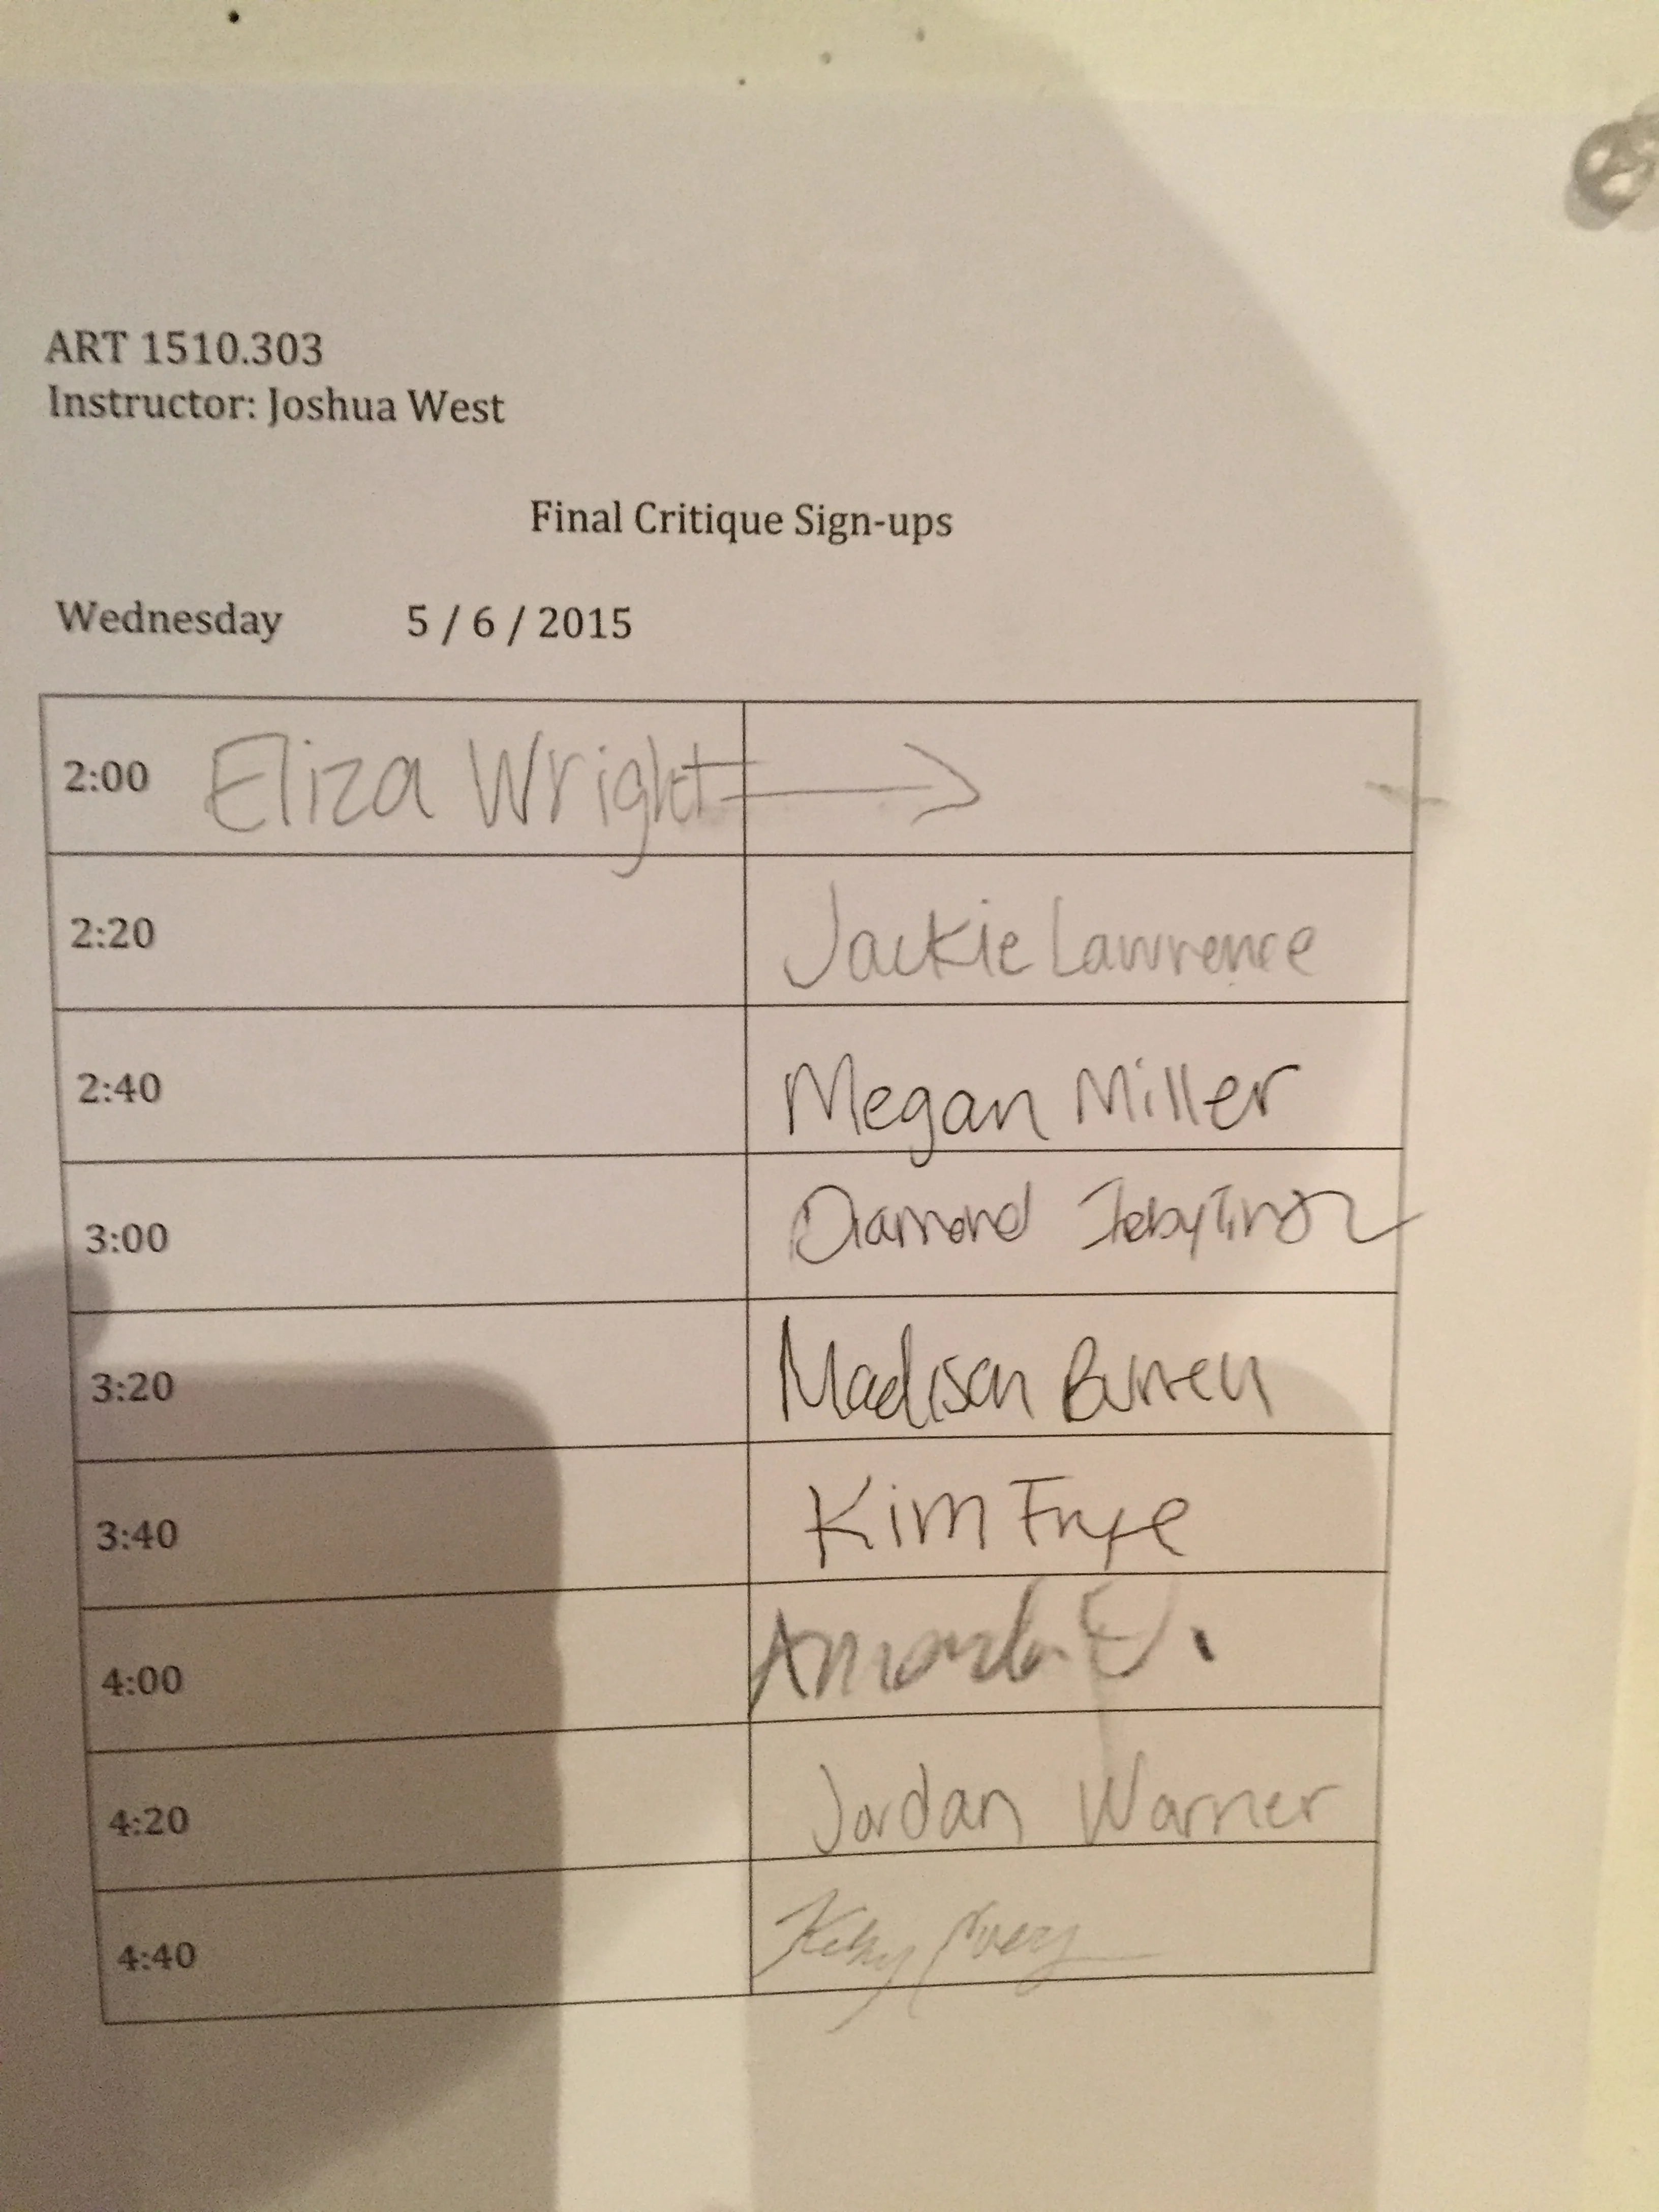 ART 1510.303
Instructor: Joshua West
Final Critique Sign-ups
Wednesday 5 / 6 / 2015
2:00 Eliza Wright →
2:20 Jackie Lawrence
2:40 Megan Miller
3:00 Diamond
3:20 Madison
3:40 Kim Frye
4:00 Amanda
4:20 Jordan Warner
4:40